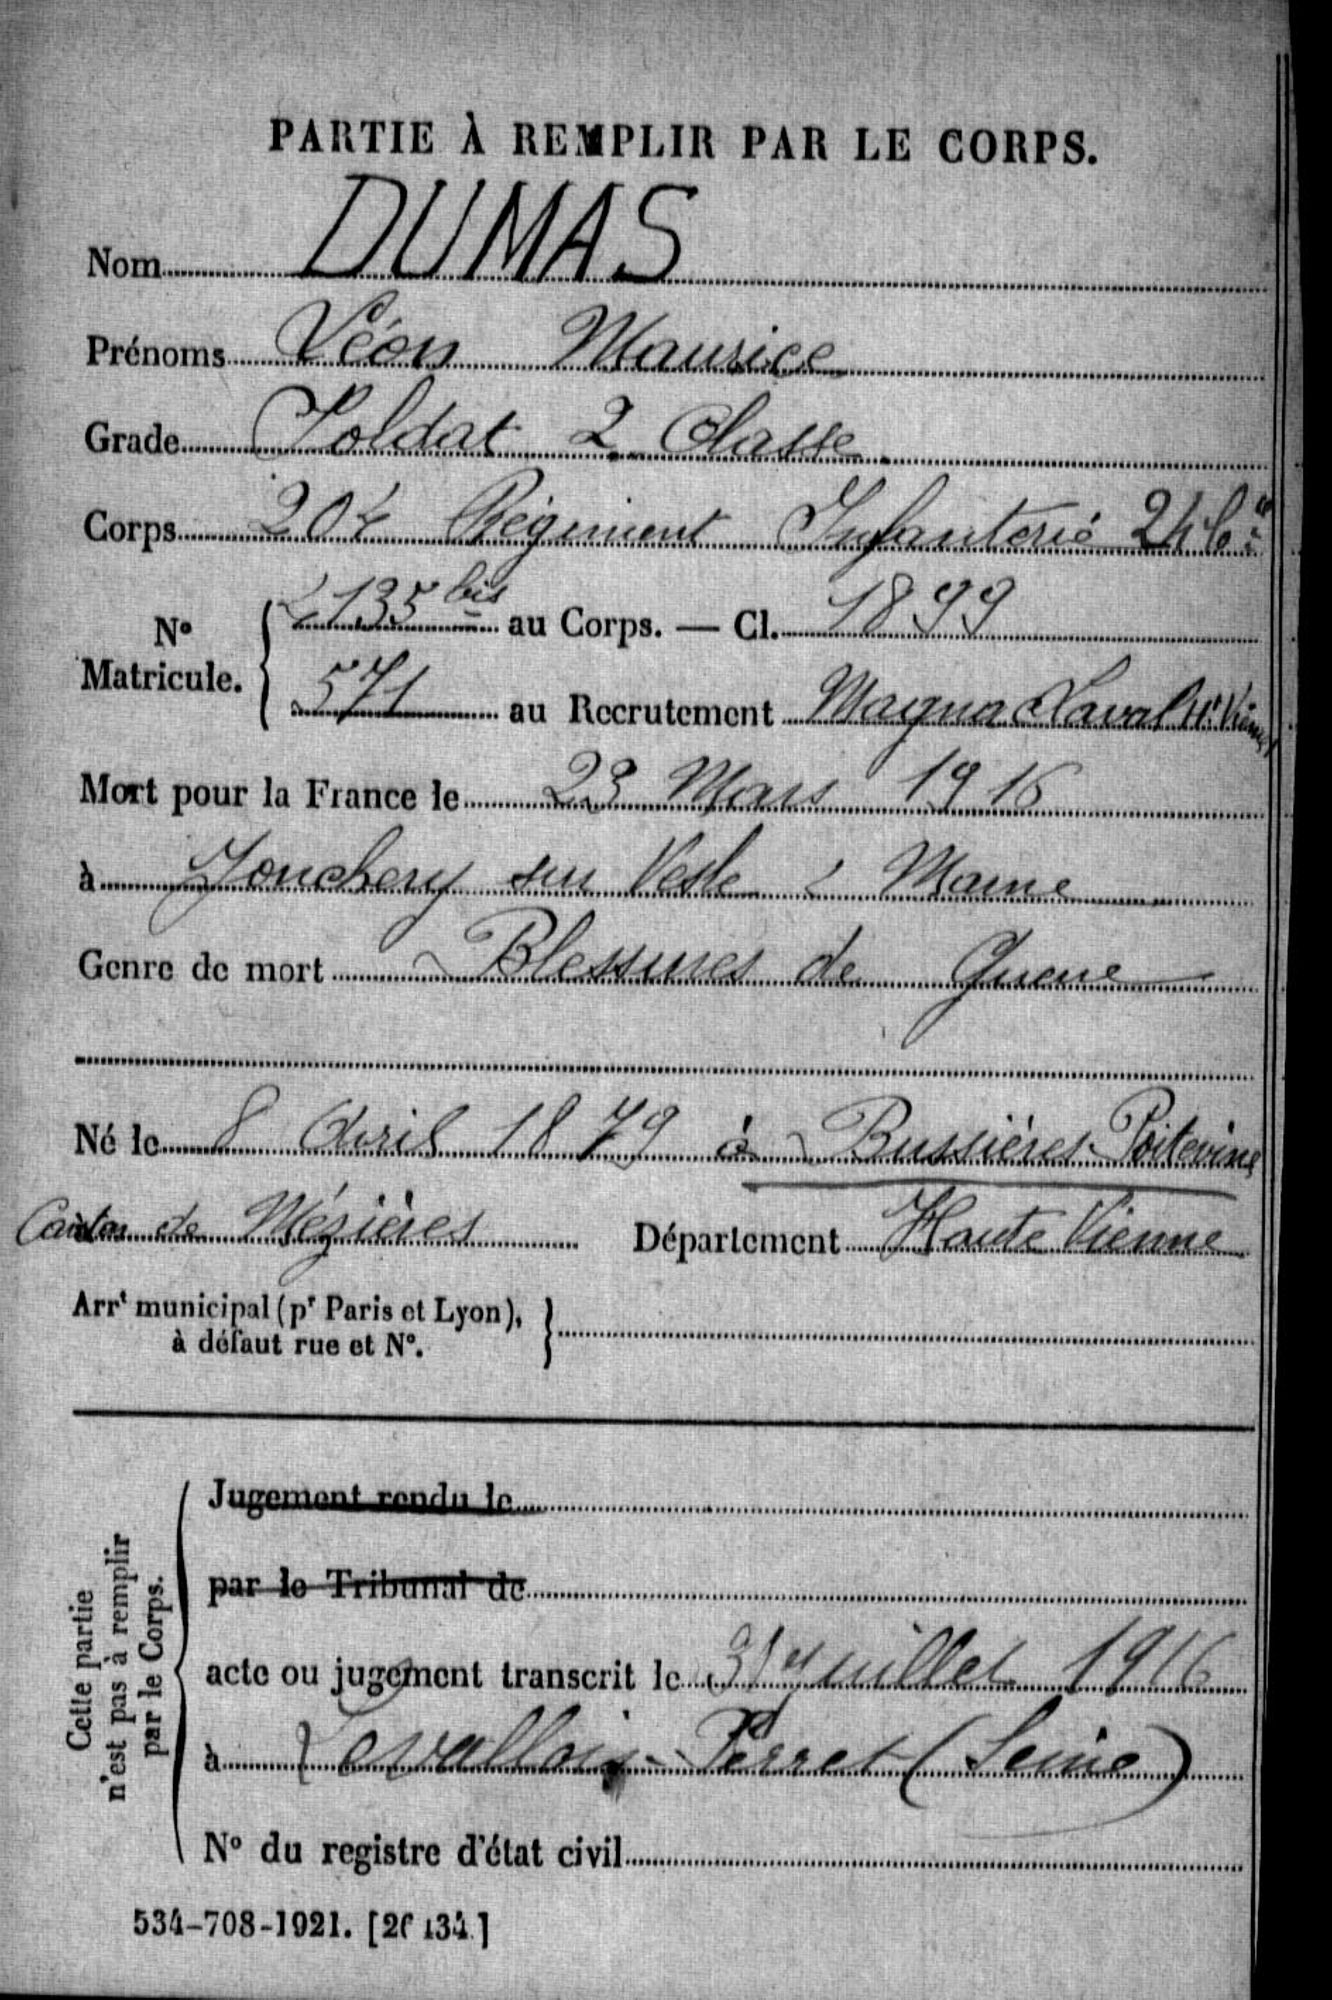 PARTIE À REMPLIR PAR LE CORPS.
Nom DUMAS
Prénoms Léon Maurice
Grade Soldat 2 Classe
Corps 204 Régiment Infanterie
N° Matricule. 2135 bis au Corps. — Cl. 1899
571 au Recrutement Magnac Laval Hte Vienne
Mort pour la France le 23 Mars 1916
à Jonchery sur Vesle Marne
Genre de mort Blessures de Guerre
Né le 8 Avril 1879 à Bussières-Poitevine
Canton de Mézières Département Haute Vienne
Arrt municipal (pr Paris et Lyon),
à défaut rue et N°.
Cette partie
n'est pas à remplir
par le Corps.
Jugement rendu le
par le Tribunal de
acte ou jugement transcrit le 31 Juillet 1916
à Levallois-Perret (Seine)
N° du registre d'état civil
534-708-1921.